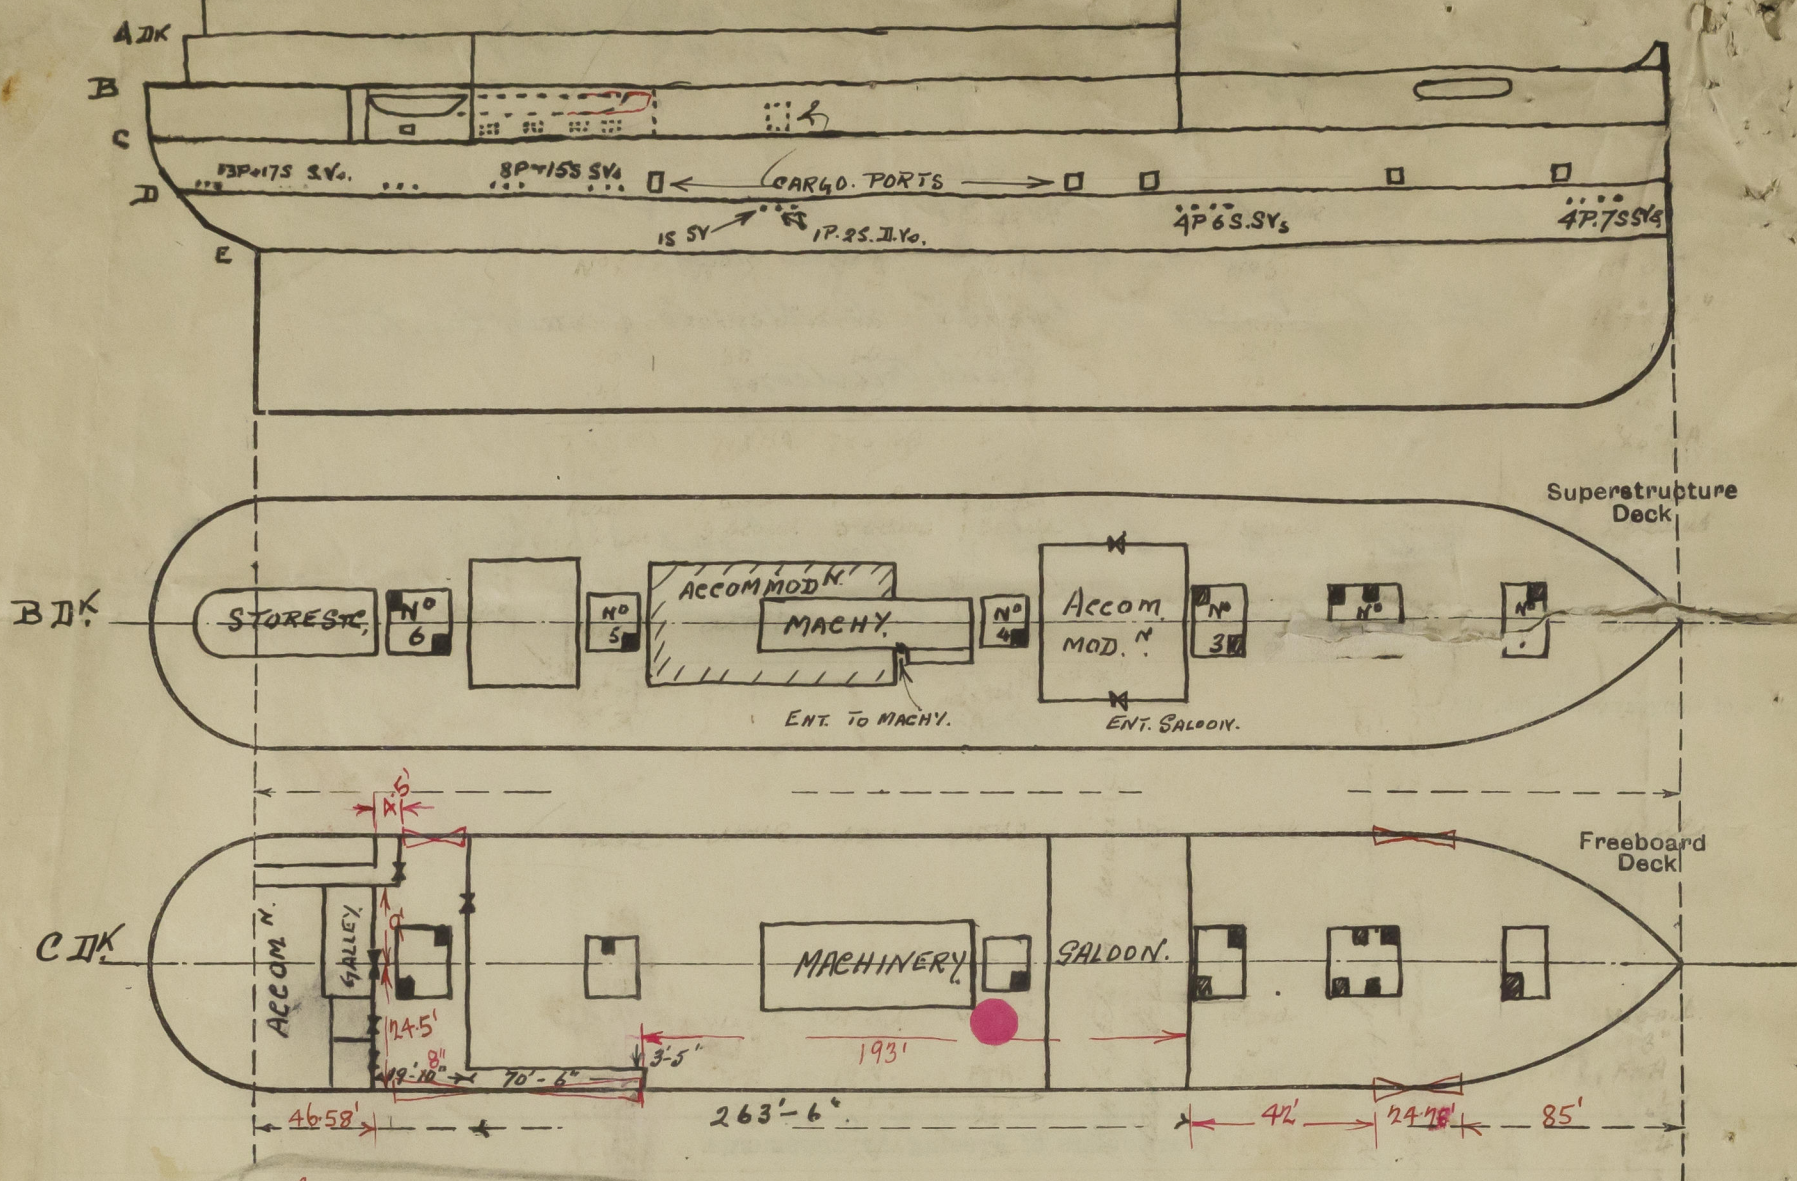 A DK
B
C
13P+17S S.Vs.
8P+15S SVs
CARGO. PORTS
D
1S SV
1P.2S.D.Vs.
4P 6S.SVs
4P.7SSVs
E
Superstructure
Deck
B DK.
STORES TC.
No
6
No
5
ACCOMMODN.
MACHY.
No
4
ACCOM
MOD.N.
No
3
No
No
ENT. TO MACHY.
ENT. SALOON.
4.5'
Freeboard
Deck
C DK.
ACCOM N.
GALLEY.
9'
MACHINERY
SALOON.
24.5'
8"
19'-10"
70'-6"
3'-5"
193'
46.58'
263'-6"
42'
85'